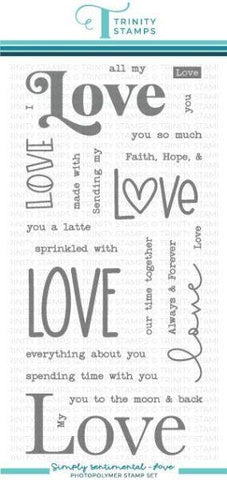 TRINITY
STAMPS
all my
Love
I
Love
you
LOVE
made with
Sending my
you so much
Faith, Hope, &
Love
you a latte
sprinkled with
LOVE
our time together
Always & Forever
Love
love
everything about you
spending time with you
you to the moon & back
My
Love
Simply sentimental - love
PHOTOPOLYMER STAMP SET